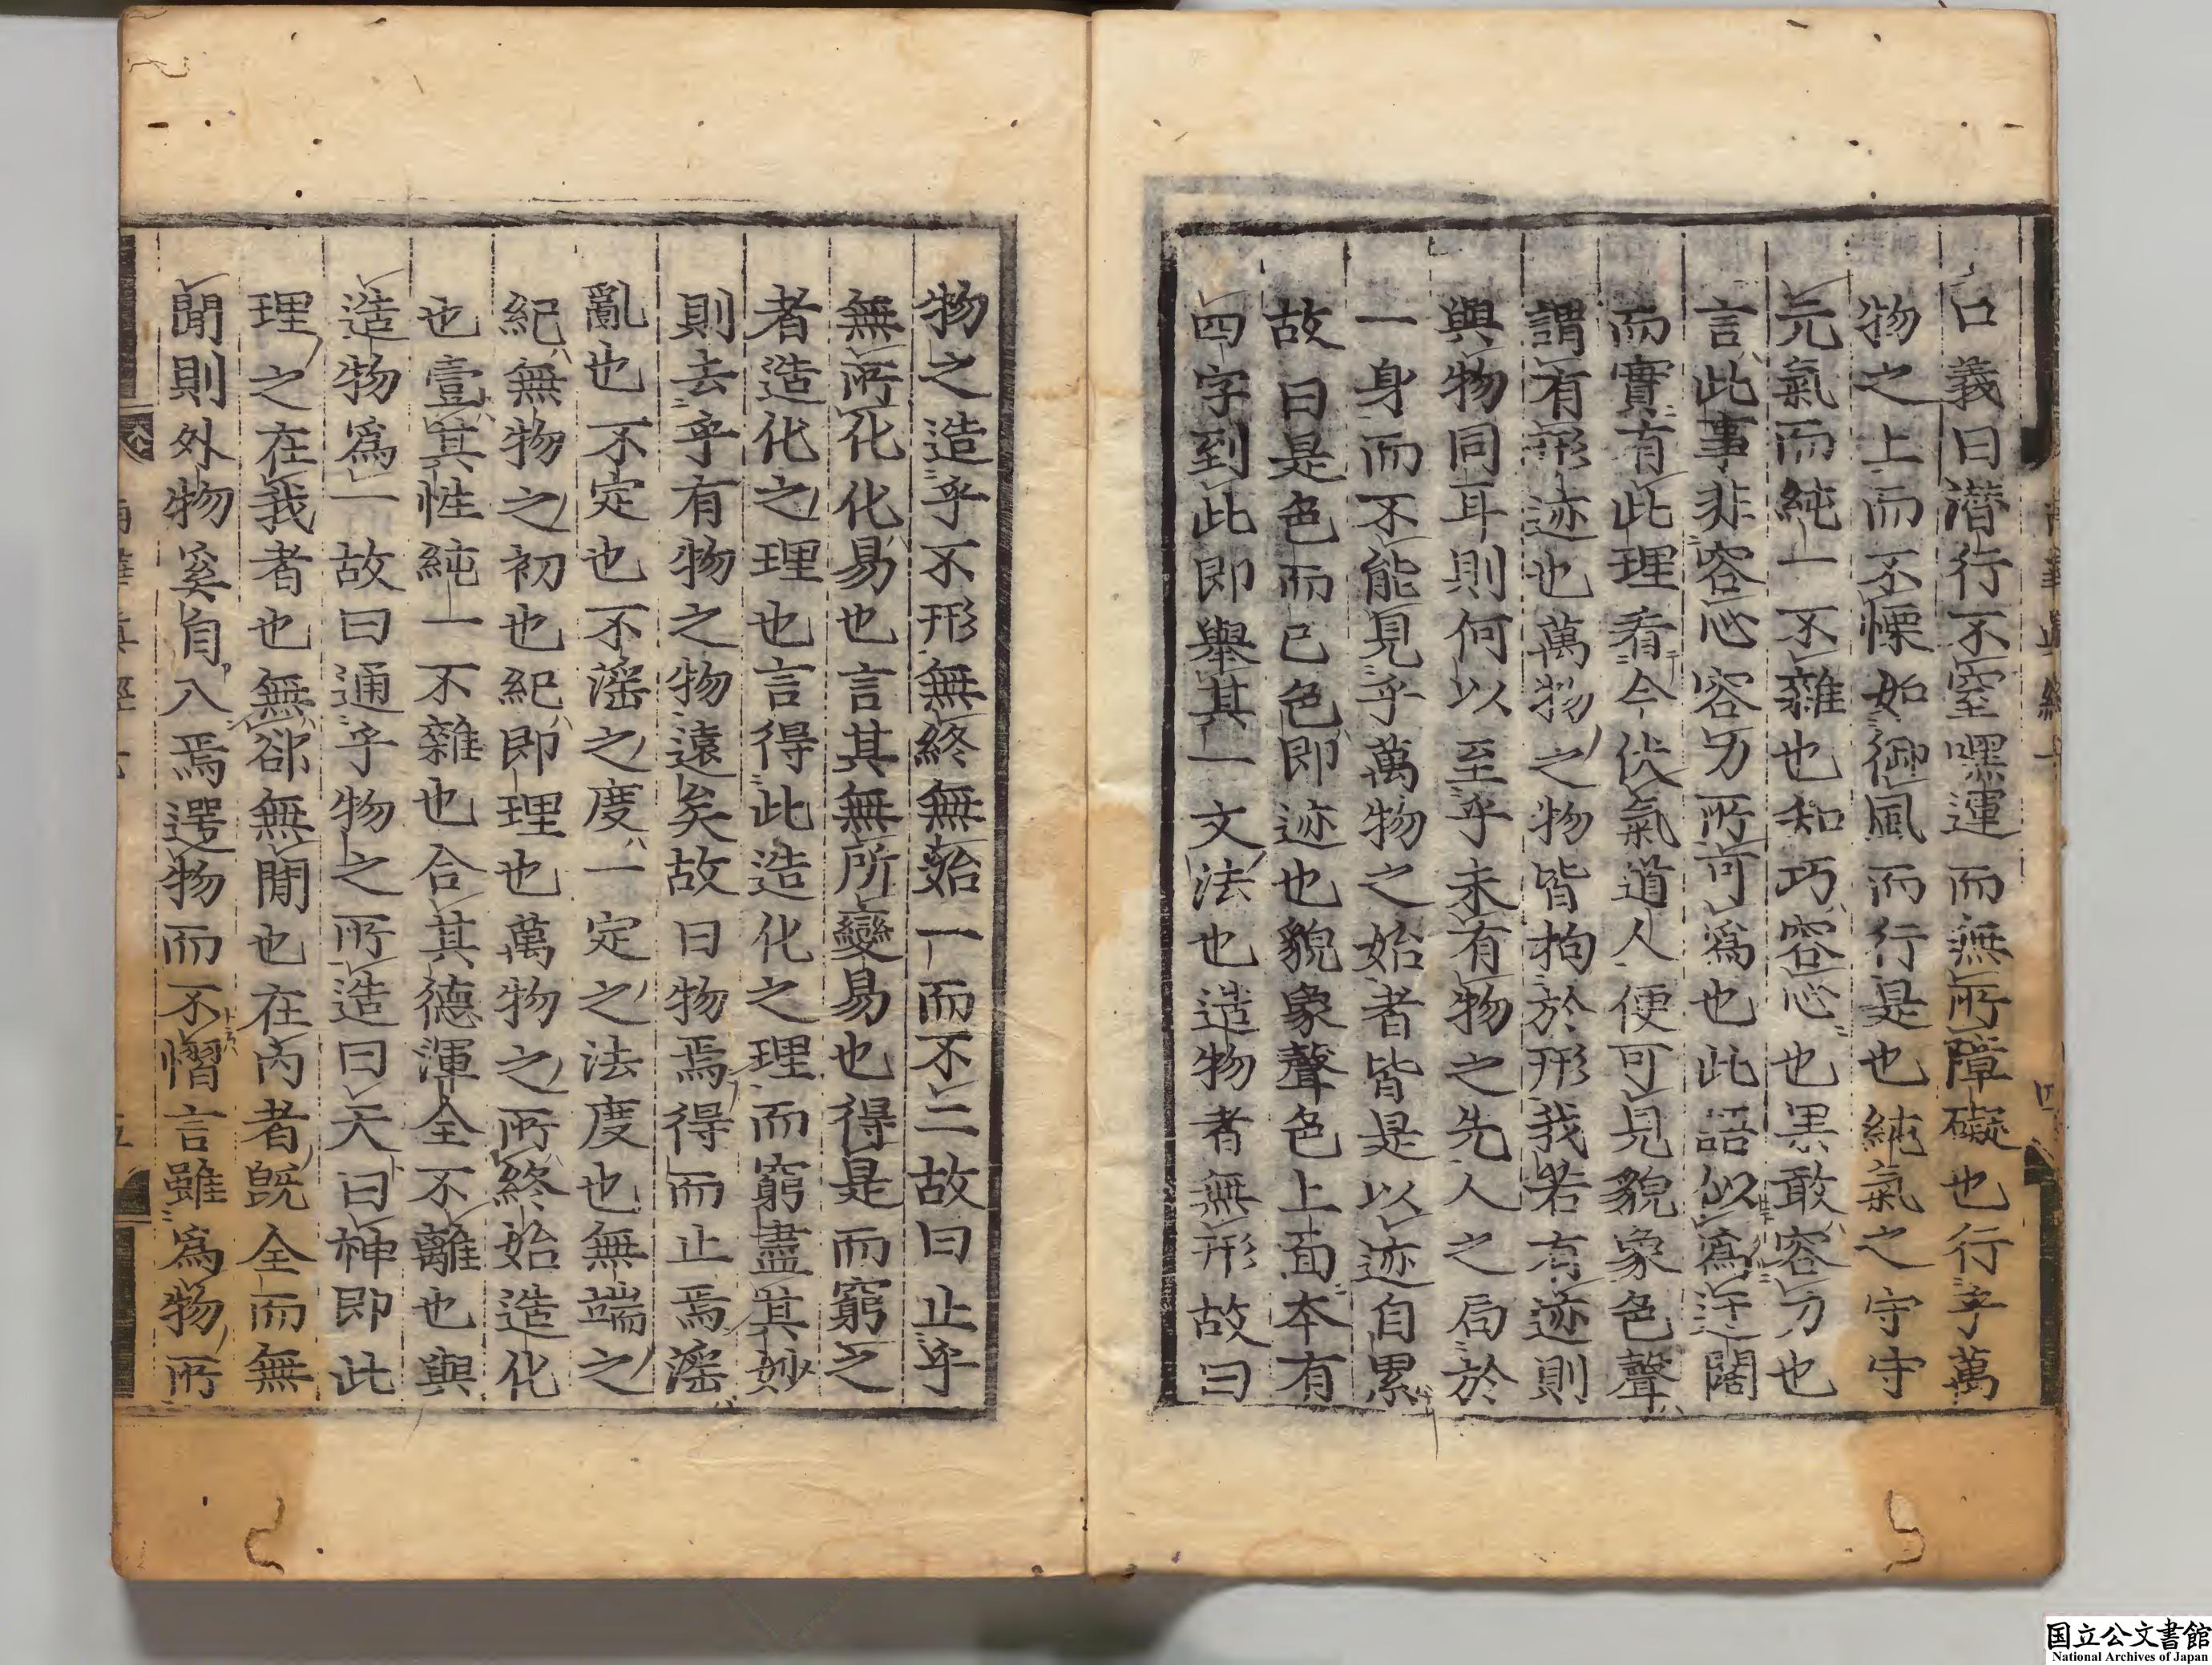 口義曰潜行不窒嘿運而無所障礙也行乎萬
物之上而不慄如御風而行是也純氣之守守
元氣而純一不雜也知巧容心也果敢容力也
言此事非容心容力所可爲也此語似爲迂闊
而實有此理看今伏氣道人便可見貌象色聲
謂有形迹也萬物之物皆拘於形我若有迹則
與物同耳則何以至乎未有物之先人之局於
一身而不能見乎萬物之始者皆是以迹自累
故曰是色而已色即迹也貌象聲色上面本有
四字到此即舉其一文法也造物者無形故曰
物之造乎不形無終無始一而不二故曰止乎
無所化化易也言其無所變易也得是而窮之
者造化之理也言得此造化之理而窮盡其妙
則去乎有物之物遠矣故曰物焉得而止焉滛
亂也不定也不滛之度一定之法度也無端之
紀無物之初也紀即理也萬物之所終始造化
也壹其性純一不雜也合其德渾全不離也與
造物爲一故曰通乎物之所造曰天曰神即此
理之在我者也無郤無閒也在內者旣全而無
閒則外物奚自入焉遻物而不慴言雖爲物所
国立公文書館
National Archives of Japan